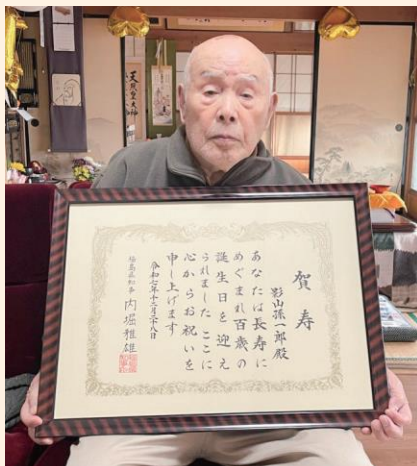 天照皇大神
賀寿
影山孫一郎殿
あなたは長寿に
めぐまれ百歳の
誕生日を迎え
られました ここに
心からお祝いを
申し上げます
令和七年十二月二十八日
福島県知事 内堀雅雄